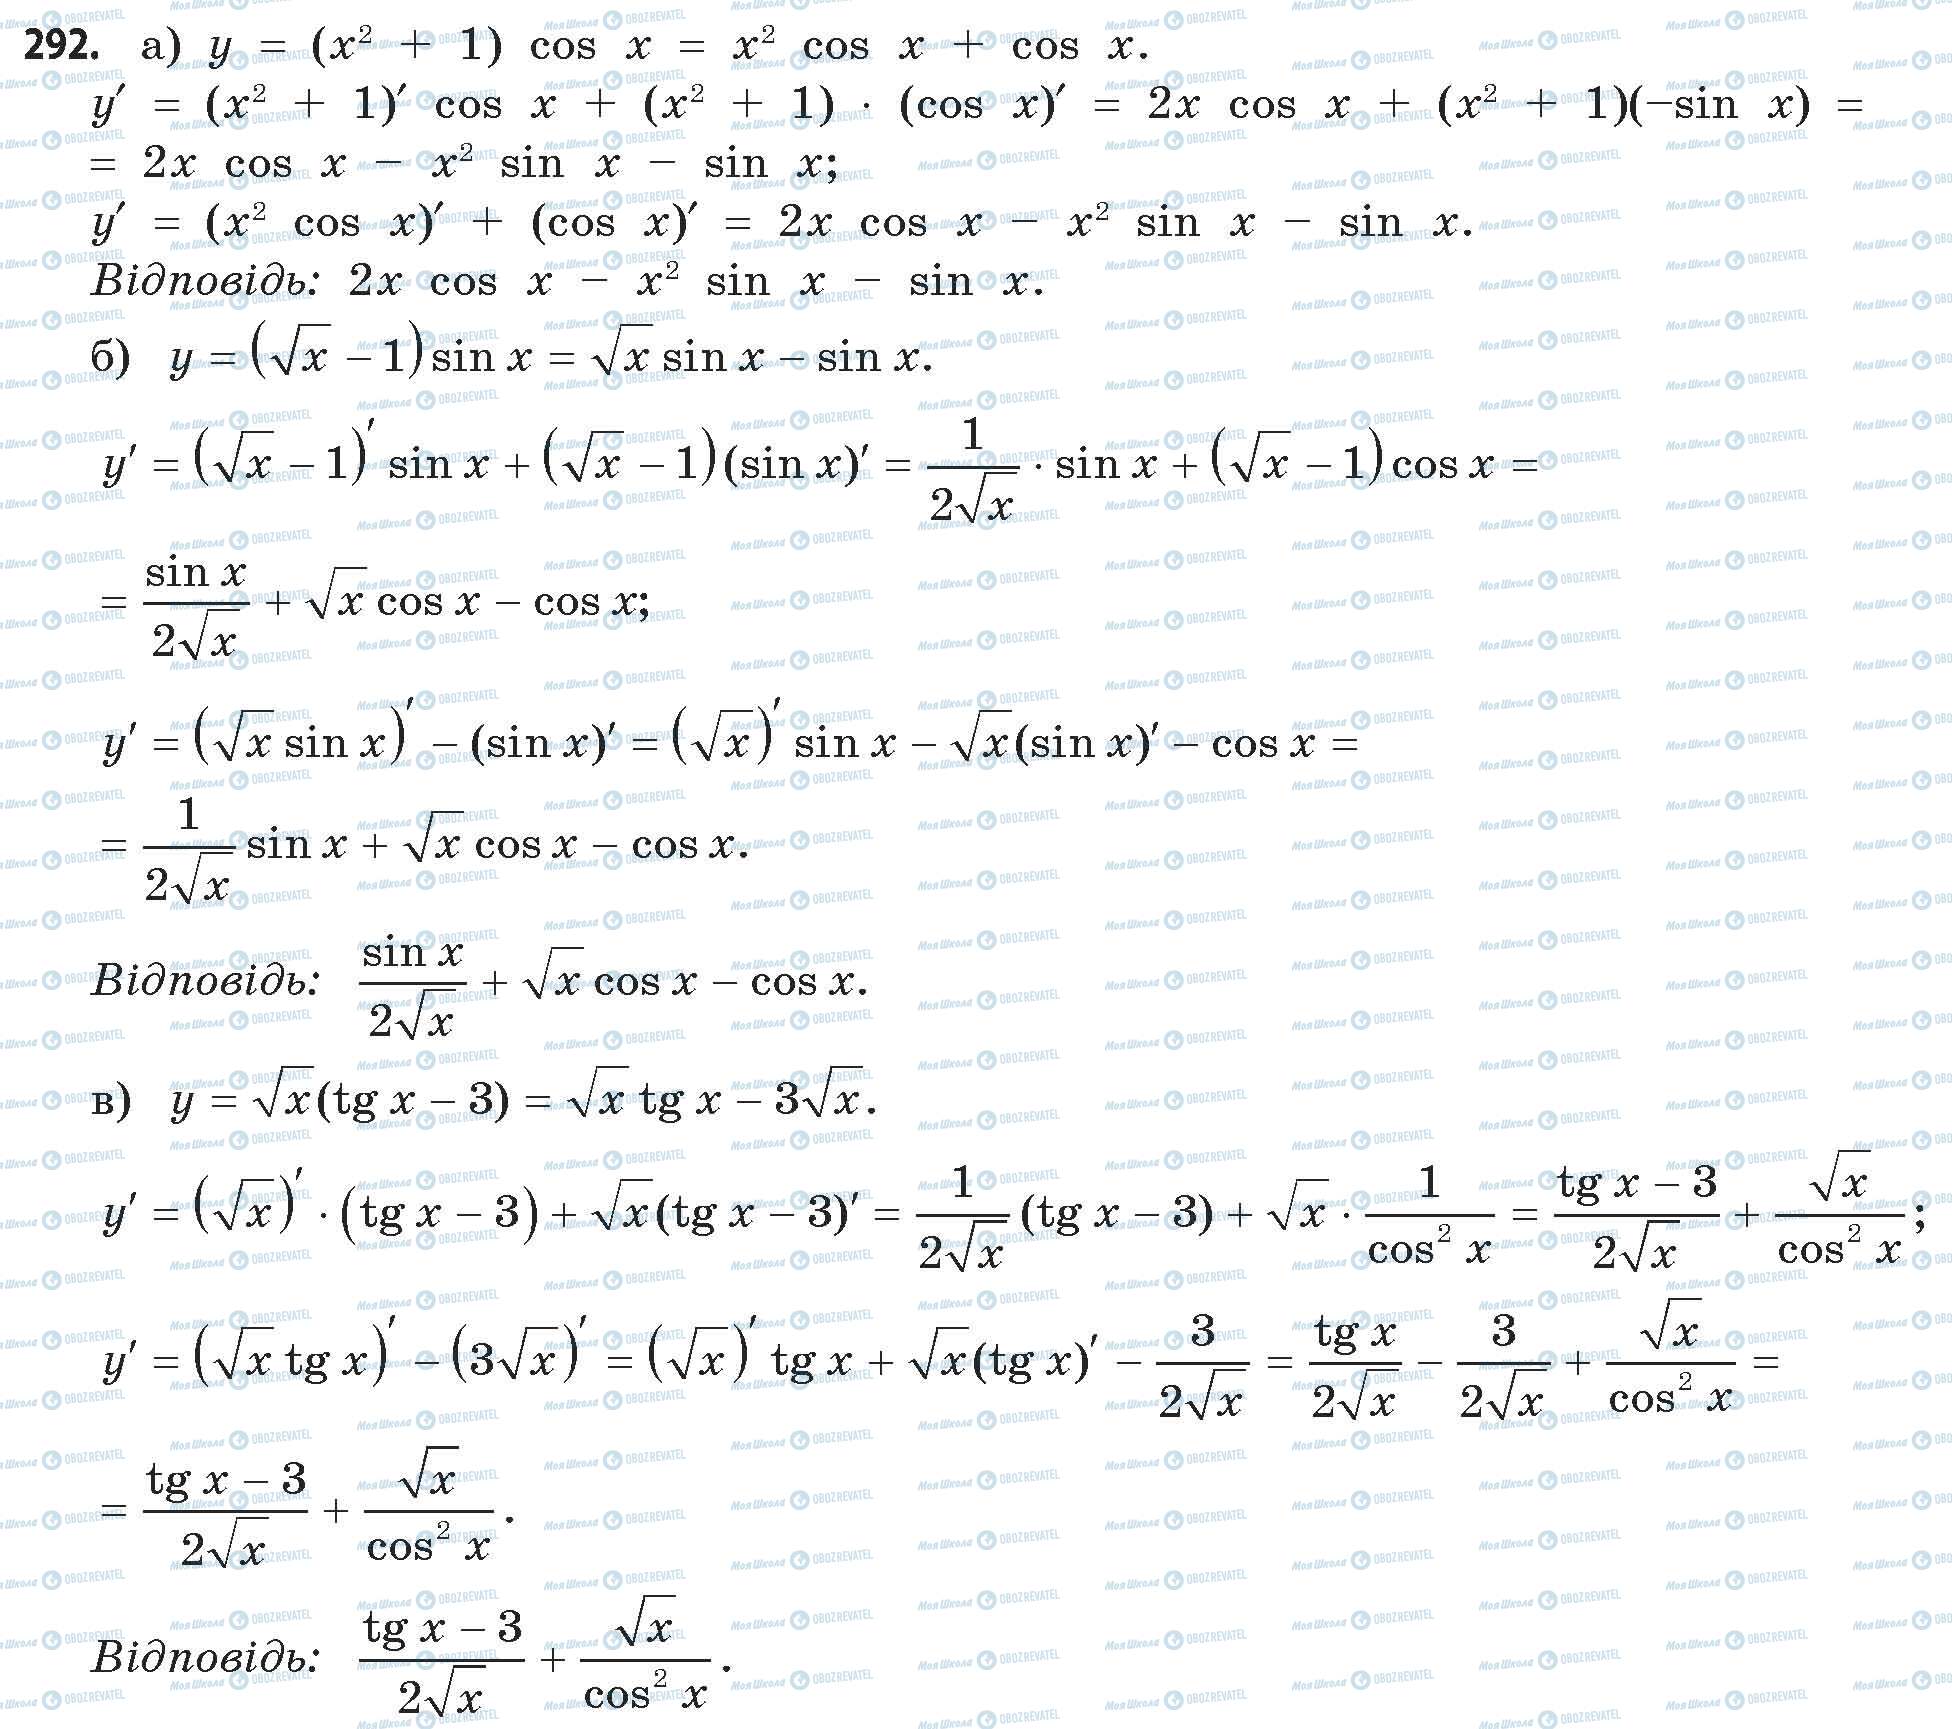 292. а) y = (x² + 1) cos x = x² cos x + cos x.
y′ = (x² + 1)′ cos x + (x² + 1) · (cos x)′ = 2x cos x + (x² + 1)(−sin x) =
= 2x cos x − x² sin x − sin x;
y′ = (x² cos x)′ + (cos x)′ = 2x cos x − x² sin x − sin x.
Відповідь: 2x cos x − x² sin x − sin x.
б) y = (√x − 1) sin x = √x sin x − sin x.
y′ = (√x − 1)′ sin x + (√x − 1)(sin x)′ = 1/(2√x) · sin x + (√x − 1) cos x =
= sin x/(2√x) + √x cos x − cos x;
y′ = (√x sin x)′ − (sin x)′ = (√x)′ sin x − √x(sin x)′ − cos x =
= 1/(2√x) sin x + √x cos x − cos x.
Відповідь: sin x/(2√x) + √x cos x − cos x.
в) y = √x(tg x − 3) = √x tg x − 3√x.
y′ = (√x)′ · (tg x − 3) + √x(tg x − 3)′ = 1/(2√x) (tg x − 3) + √x · 1/(cos² x) = (tg x − 3)/(2√x) + √x/(cos² x);
y′ = (√x tg x)′ − (3√x)′ = (√x)′ tg x + √x(tg x)′ − 3/(2√x) = tg x/(2√x) − 3/(2√x) + √x/(cos² x) =
= (tg x − 3)/(2√x) + √x/(cos² x).
Відповідь: (tg x − 3)/(2√x) + √x/(cos² x).
Моя Школа OBOZREVATEL